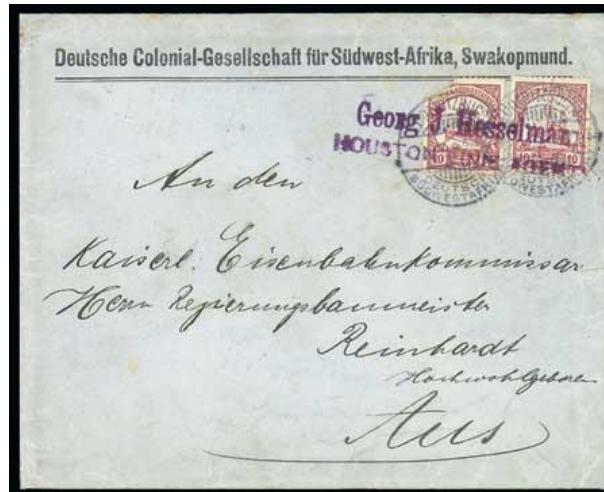 Deutsche Colonial-Gesellschaft für Südwest-Afrika, Swakopmund.
Georg J. Hesselman
HOUSTON
10 10
DEUTSCH
SÜDWESTAFRIKA
An den
Kaiserl. Eisenbahnkommissar
Herrn Regierungsbaumeister
Reinhardt
Hochwohlgeboren
Aus